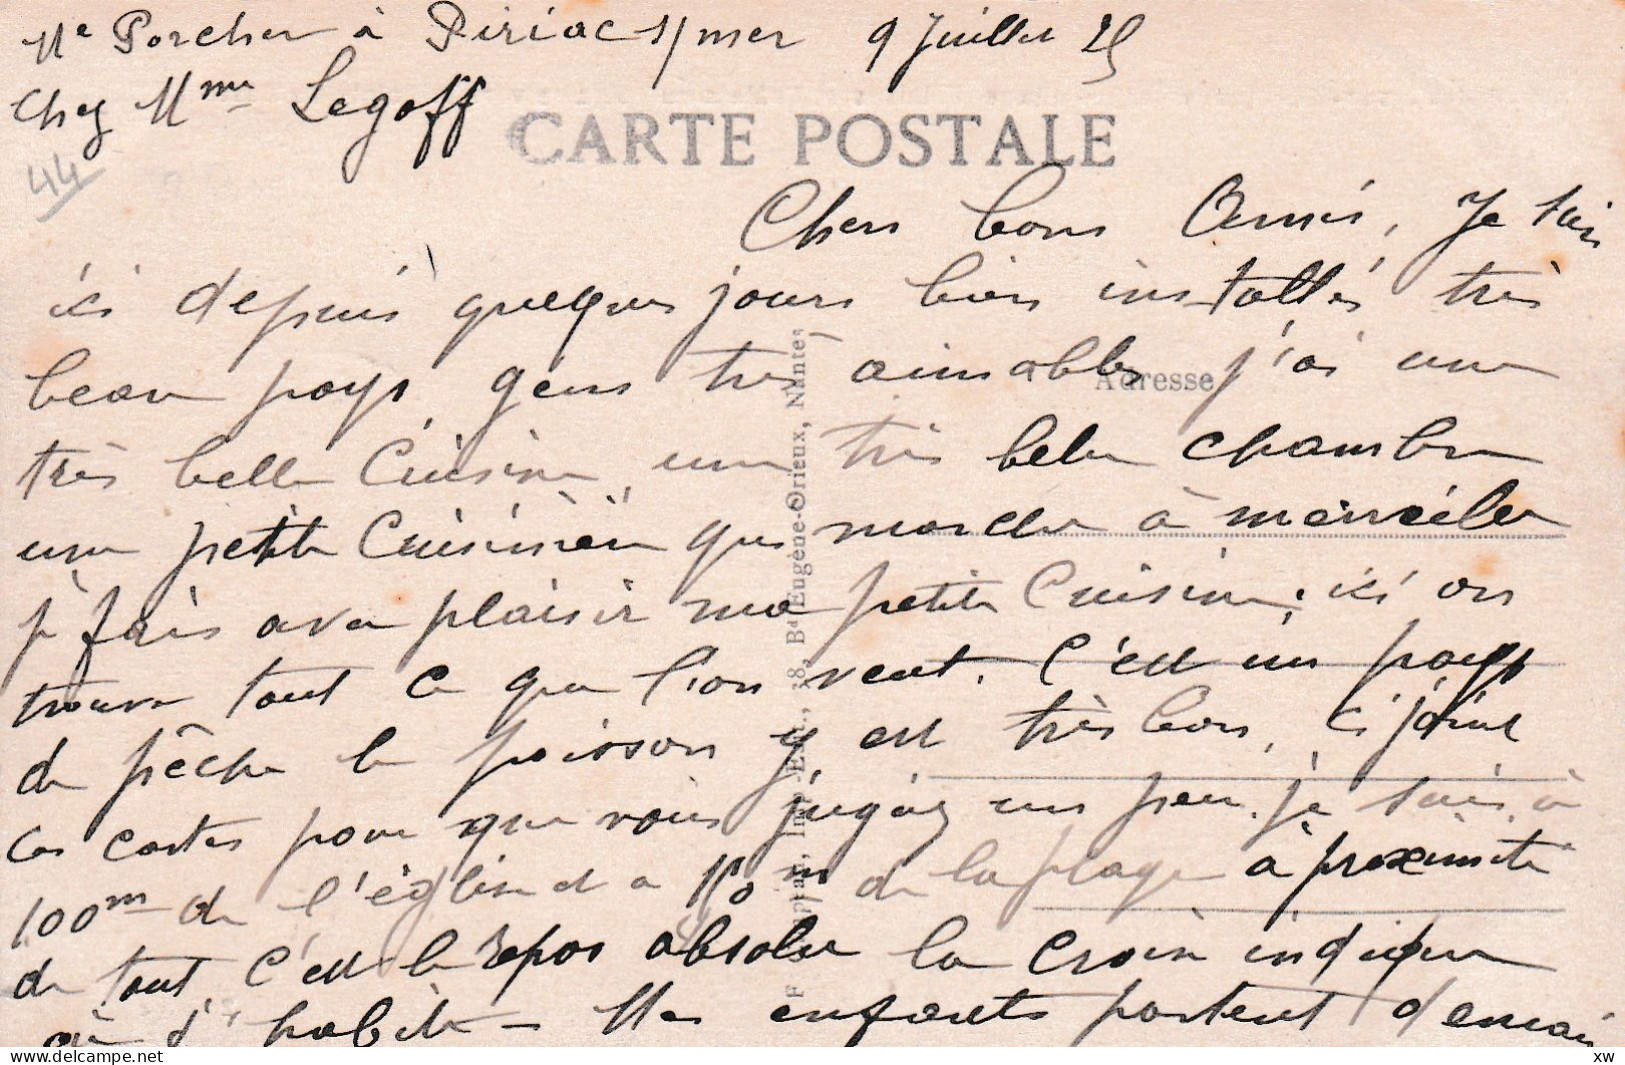 Me Porcher à Piriac s/mer 9 Juillet 25
Chez Mme Legoff
44
CARTE POSTALE
Chers bons Amis, Je suis
ici depuis quelques jours bien installés très
beau pays, gens très aimables j'ai une
Adresse
très belle Cuisine une très belle chambre
une petite Cuisinière qui marche à merveille
je fais avec plaisir ma petite Cuisine, ici on
trouve tout ce que l'on veut. C'est un pays
de pêche le poisson y est très bon, ci joint
ces cartes pour que vous jugiez un peu. je suis à
100m de l'église et à 150m de la plage à proximité
de tout C'est le repos absolu la Croix indique
où j'habite - Mes enfants partent demain
38, Bd Eugène-Orieux, Nantes